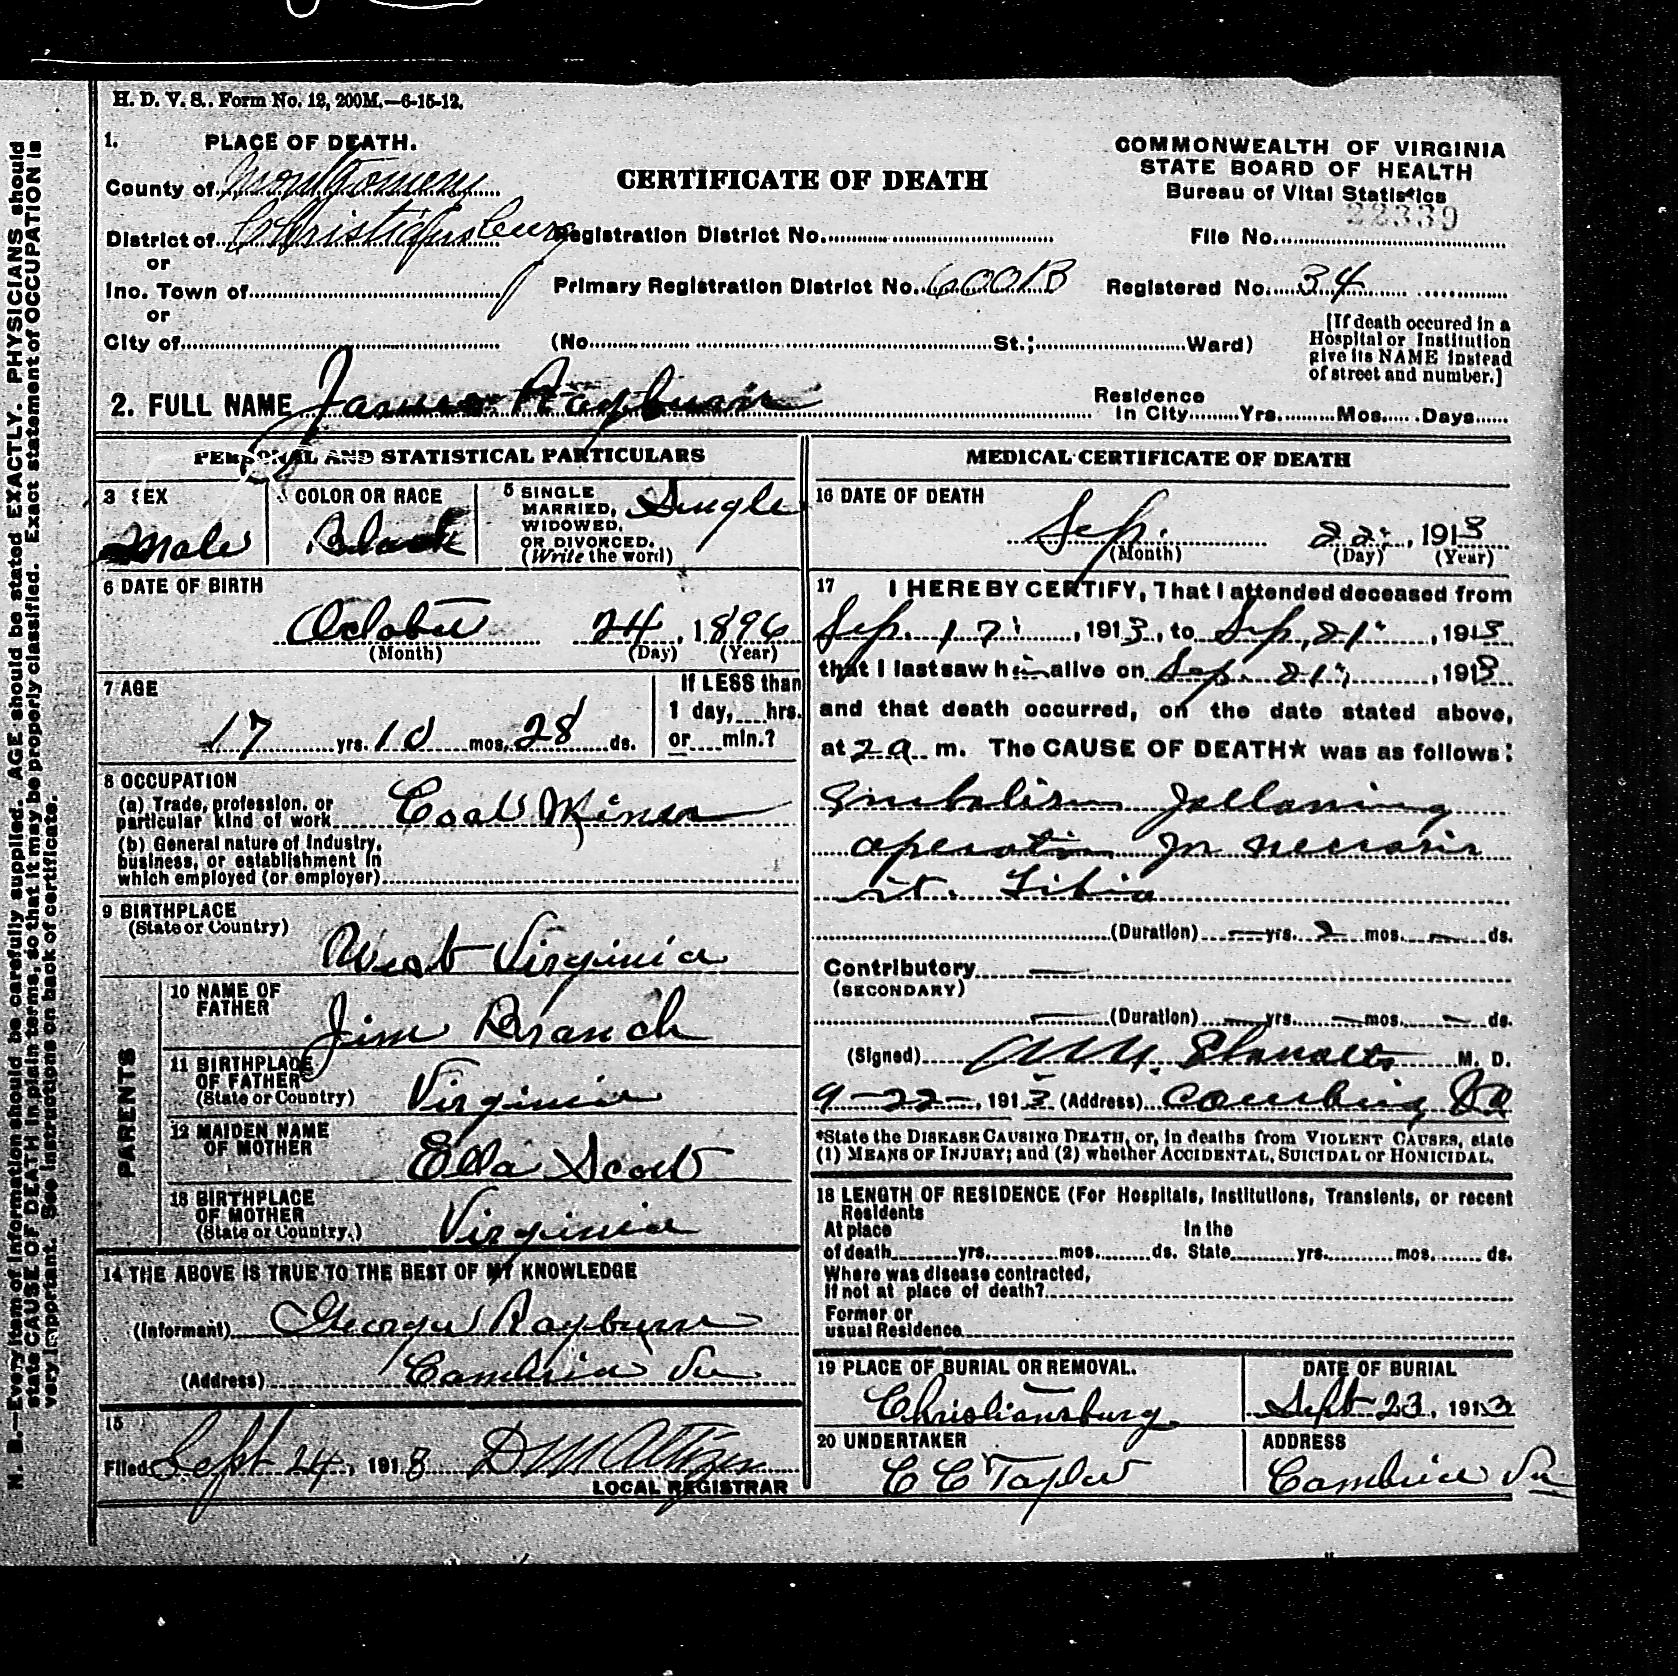 H. D. V. S., Form No. 12, 200M.—6-15-12.
1. PLACE OF DEATH.
County of Montgomery
District of Christiansburg
or
Inc. Town of
or
City of
CERTIFICATE OF DEATH
Registration District No.
Primary Registration District No. 6001B
(No. St.; Ward)
COMMONWEALTH OF VIRGINIA
STATE BOARD OF HEALTH
Bureau of Vital Statistics
22339
File No.
Registered No. 34
[If death occured in a
Hospital or Institution
give its NAME instead
of street and number.]
2. FULL NAME James Rayburn
Residence
In City Yrs. Mos. Days
PERSONAL AND STATISTICAL PARTICULARS
3 SEX
Male
4 COLOR OR RACE
Black
5 SINGLE
MARRIED,
WIDOWED,
OR DIVORCED.
(Write the word)
Single
6 DATE OF BIRTH
October 24, 1896
(Month) (Day) (Year)
7 AGE
17 yrs. 10 mos. 28 ds.
If LESS than
1 day, hrs.
or min.?
8 OCCUPATION
(a) Trade, profession, or
particular kind of work Coal Miner
(b) General nature of Industry,
business, or establishment in
which employed (or employer)
9 BIRTHPLACE
(State or Country)
West Virginia
PARENTS
10 NAME OF
FATHER
Jim Branch
11 BIRTHPLACE
OF FATHER
(State or Country)
Virginia
12 MAIDEN NAME
OF MOTHER
Ella Scott
13 BIRTHPLACE
OF MOTHER
(State or Country.)
Virginia
14 THE ABOVE IS TRUE TO THE BEST OF MY KNOWLEDGE
(Informant) George Rayburn
(Address) Cambria Va
15
Filed Sept 24, 1913
LOCAL REGISTRAR
MEDICAL CERTIFICATE OF DEATH
16 DATE OF DEATH
Sep. 22, 1913
(Month) (Day) (Year)
17 I HEREBY CERTIFY, That I attended deceased from
Sep. 17, 1913, to Sep. 21, 1913
that I last saw him alive on Sep. 21, 1913
and that death occurred, on the date stated above,
at 2 a m. The CAUSE OF DEATH* was as follows:
Embolism following
operation for necrosis
rt. Tibia
(Duration) — yrs. 2 mos. — ds.
Contributory —
(SECONDARY)
(Duration) — yrs. — mos. — ds.
(Signed) M. D.
9-22-, 1913 (Address) Cambria Va
*State the DISEASE CAUSING DEATH, or, in deaths from VIOLENT CAUSES, state
(1) MEANS OF INJURY; and (2) whether ACCIDENTAL, SUICIDAL or HOMICIDAL.
18 LENGTH OF RESIDENCE (For Hospitals, Institutions, Transients, or recent
Residents
At place In the
of death yrs. mos. ds. State yrs. mos. ds.
Where was disease contracted,
If not at place of death?
Former or
usual Residence
19 PLACE OF BURIAL OR REMOVAL.
Christiansburg
DATE OF BURIAL
Sept 23, 1913
20 UNDERTAKER
C C Taylor
ADDRESS
Cambria Va
N. B.—Every item of information should be carefully supplied. AGE should be stated EXACTLY. PHYSICIANS should
state CAUSE OF DEATH in plain terms, so that it may be properly classified. Exact statement of OCCUPATION is
very important. See instructions on back of certificate.